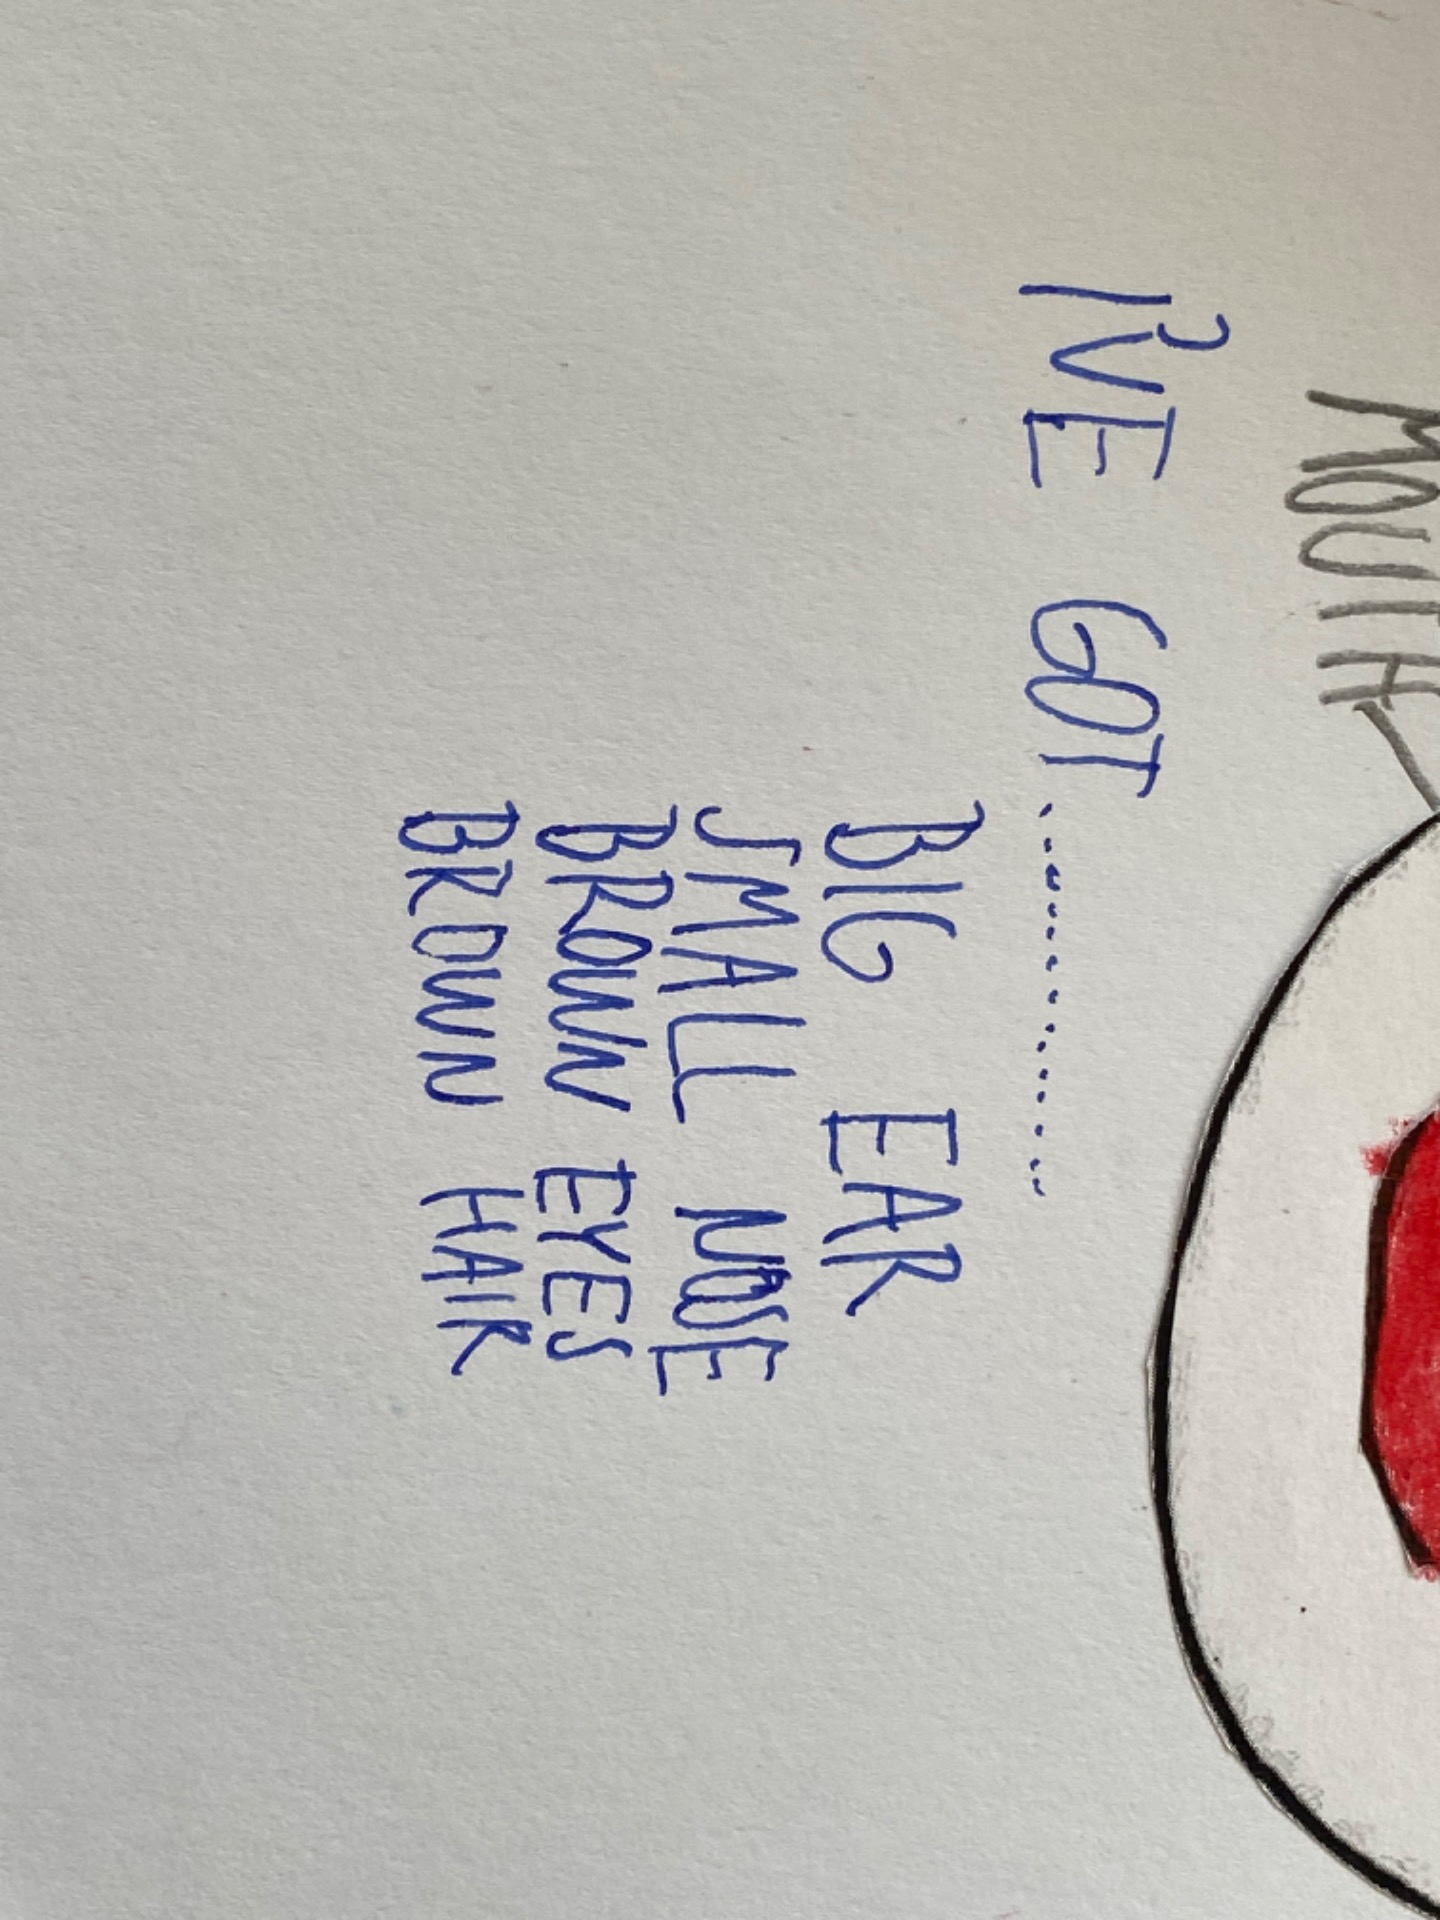 MOUTH
I'VE GOT..............
BIG EAR
SMALL NOSE
BROWN EYES
BROWN HAIR